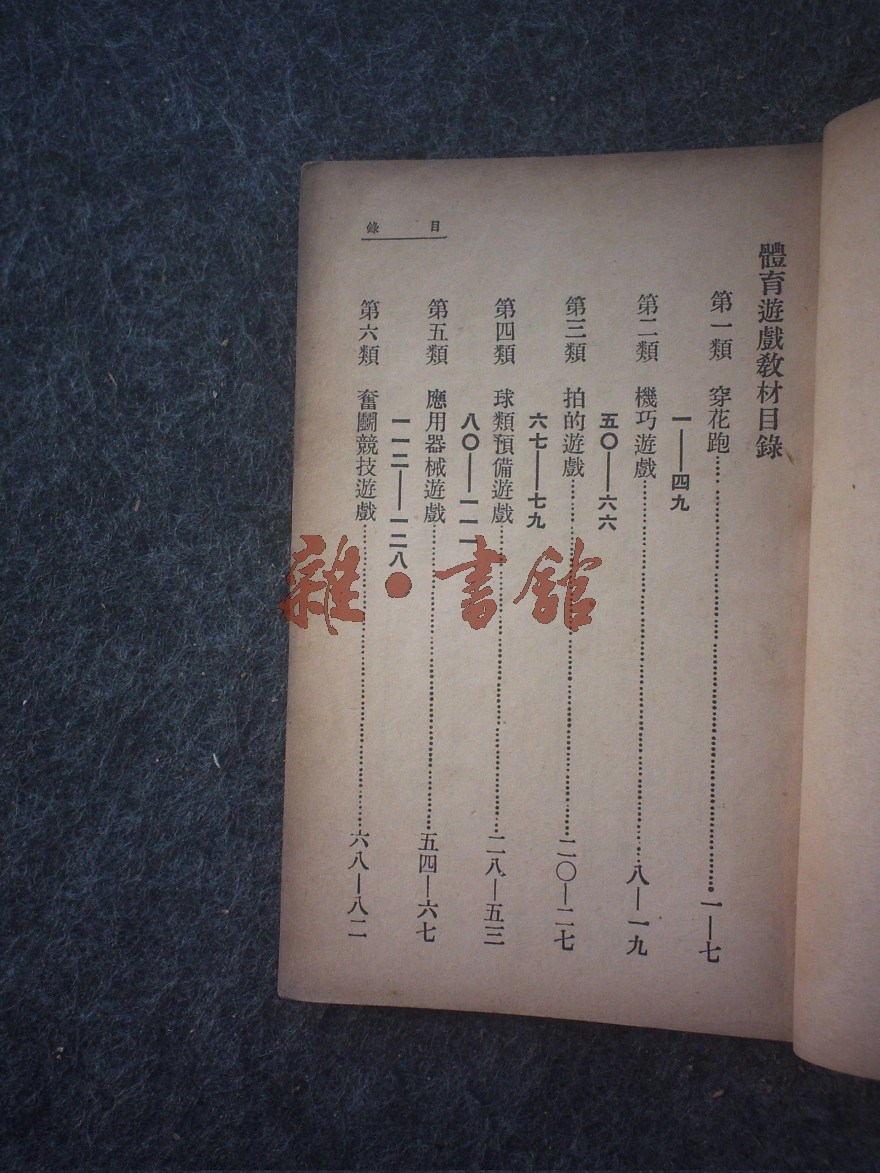 體育遊戲教材目錄
第一類 穿花跑……一—七
一——四九
第二類 機巧遊戲……八—一九
五〇——六六
第三類 拍的遊戲……二〇—二七
六七——七九
第四類 球類預備遊戲……二八—五三
八〇——一一一
第五類 應用器械遊戲……五四—六七
一一二——一二八
第六類 奮鬭競技遊戲……六八—八二
目錄
雜·書館